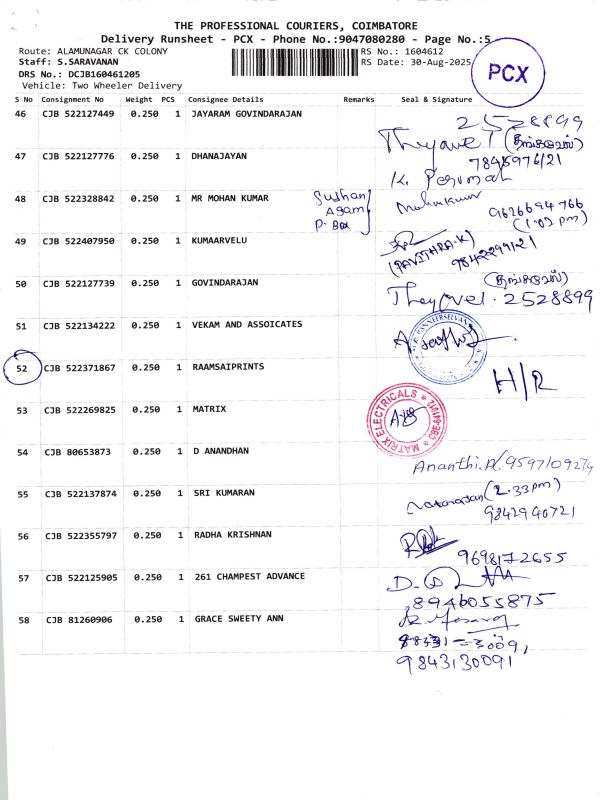 THE PROFESSIONAL COURIERS, COIMBATORE
Delivery Runsheet - PCX - Phone No.:9047080280 - Page No.:5
Route: ALAMUNAGAR CK COLONY RS No.: 1604612
Staff: S.SARAVANAN RS Date: 30-Aug-2025
DRS No.: DCJB160461205
Vehicle: Two Wheeler Delivery
PCX
S No Consignment No Weight PCS Consignee Details Remarks Seal & Signature
46 CJB 522127449 0.250 1 JAYARAM GOVINDARAJAN 2528899
47 CJB 522127776 0.250 1 DHANAJAYAN
K. Perumal
48 CJB 522328842 0.250 1 MR MOHAN KUMAR Sudhan Agam P. Box Mohankumar 9626694766
(1:02 pm)
49 CJB 522407950 0.250 1 KUMAARVELU
(PAVITHRA.K) 9842299121
50 CJB 522127739 0.250 1 GOVINDARAJAN
2528899
51 CJB 522134222 0.250 1 VEKAM AND ASSOICATES
52 CJB 522371867 0.250 1 RAAMSAIPRINTS H/R
53 CJB 522269825 0.250 1 MATRIX MATRIX ELECTRICALS
54 CJB 80653873 0.250 1 D ANANDHAN Ananthi.A/ 9597109279
55 CJB 522137874 0.250 1 SRI KUMARAN Natarajan (2.33pm)
9842940721
56 CJB 522355797 0.250 1 RADHA KRISHNAN
9698172655
57 CJB 522125905 0.250 1 261 CHAMPEST ADVANCE
8946055875
58 CJB 81260906 0.250 1 GRACE SWEETY ANN
9843130091